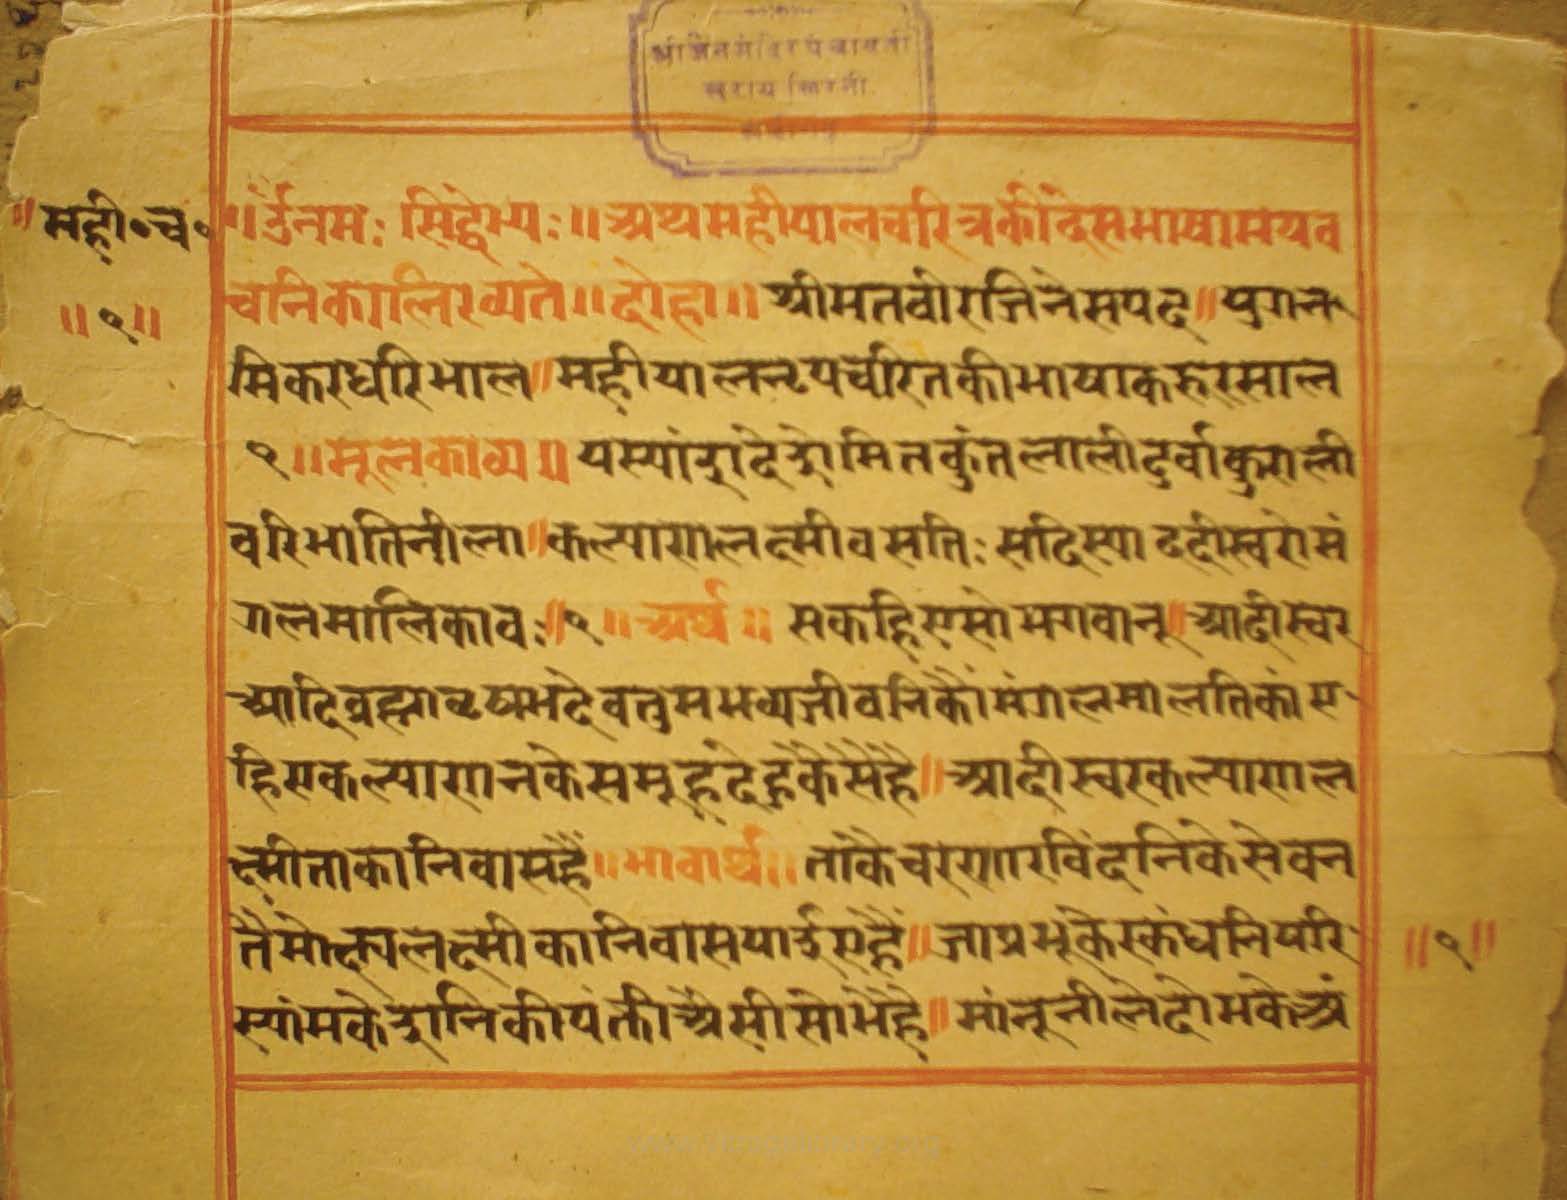 श्रीजैनमंदिरपंचायती
सराय
॥मही०च०
॥१॥
॥ॐनमः सिद्धेभ्यः॥अथमहीपालचरित्रकीदेसभाषामयव
चनिकालिख्यते॥दोहा॥श्रीमतवीरजिनेसपद॥युगन
मिकरधरिभाल॥महीपालनृपचरितकीभाषाकरुरसाल
१॥मूलकाव्य॥यस्यांशदेशेमितकुंतलालीदुर्वाकुराली
वरिभातिनीला॥कल्याणलक्ष्मीवसतिःसदिस्याददीस्वरोमं
गलमालिकावः॥१॥अर्थ॥सकहिएसोभगवान्॥आदीस्वर
आदिब्रह्मावृषभदेवतुमभव्यजीवनिकौंमंगलमालतिकांए
हिएकल्याणनकेसमूहदेहुकैसेहै॥आदीस्वरकल्याणल
क्ष्मीताकानिवासहैं॥भावार्थ॥तांकैचरणारविंदनिकेसेवन
तैंमोक्षलक्ष्मीकानिवासपाईएहैं॥जाप्रभूकेस्कंधनिपरि
स्यांमकेशनिकीपंक्तीअैसीसोभैहै॥मांनूनीलेदोमकेअं
॥१॥